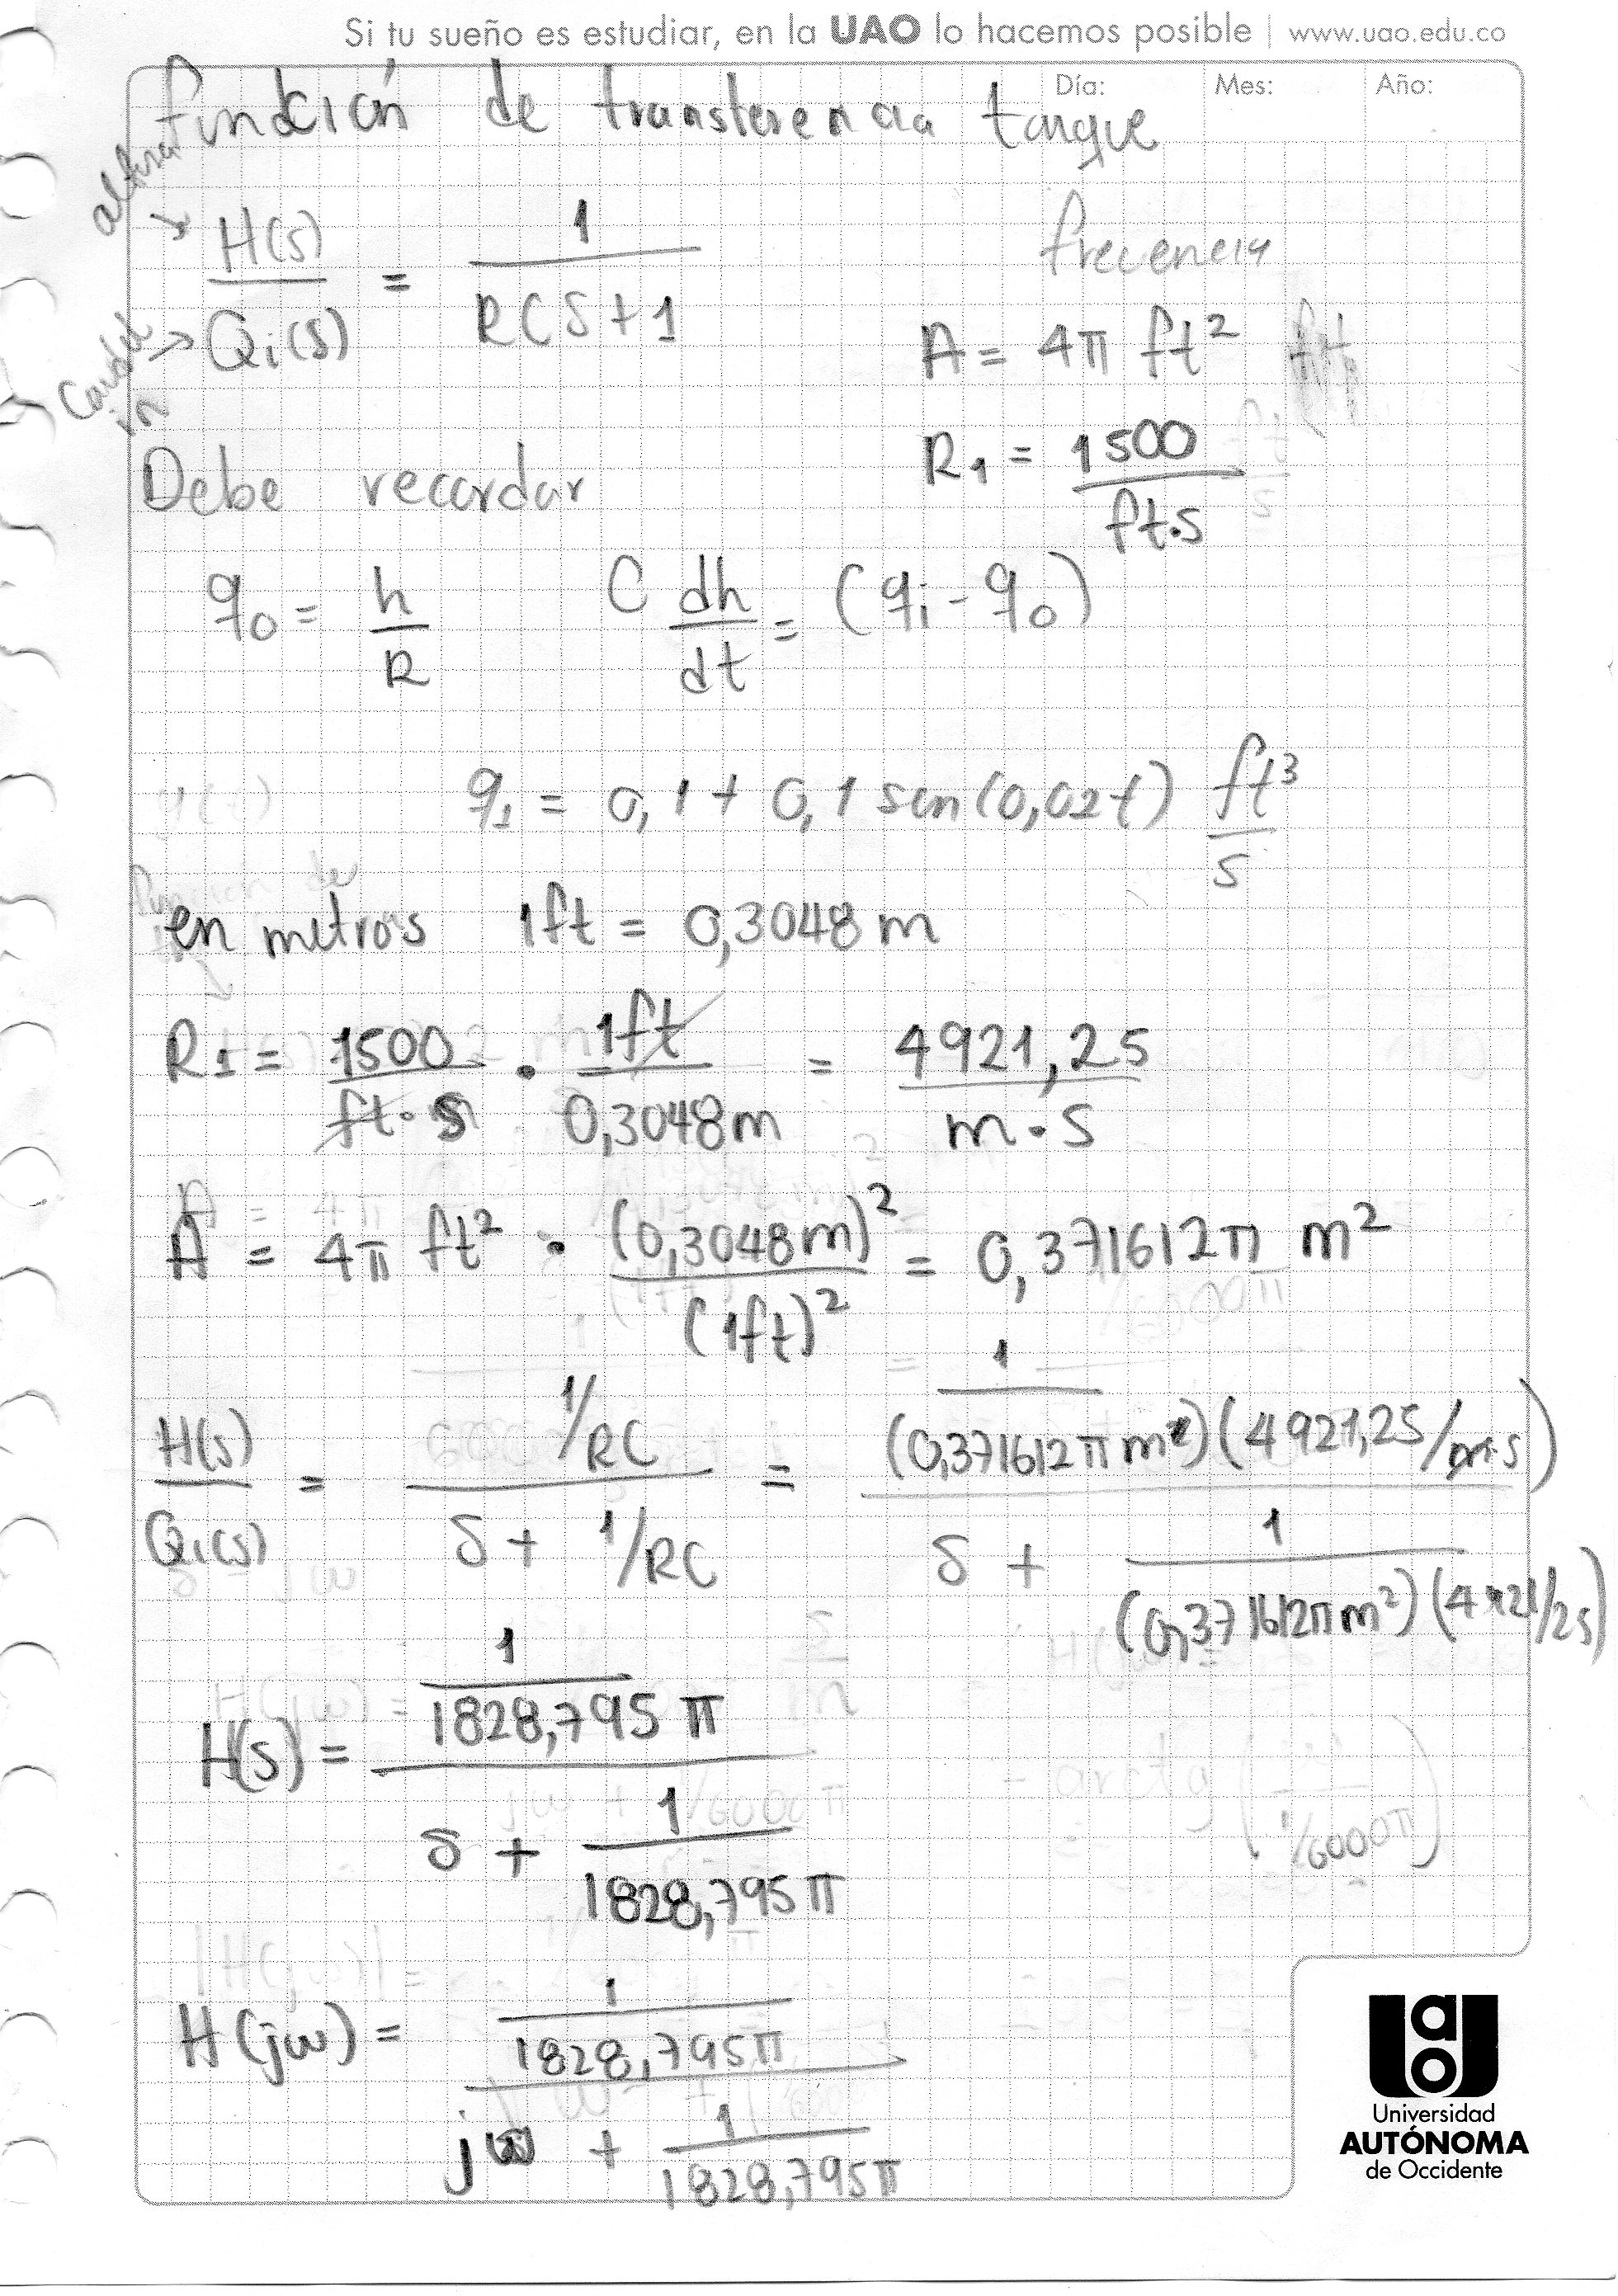 Si tu sueño es estudiar, en la UAO lo hacemos posible | www.uao.edu.co
Día: Mes: Año:
función de transferencia tanque
altura → H(s) / Qi(s) = 1 / RCS+1
Caudal in →
frecencia
A = 4π ft²
R1 = 1500 / ft.s
Debe recordar
q0 = h / R C dh / dt = (qi - q0)
q1 = 0,1 + 0,1 sen(0,02t) ft³ / s
en metros 1ft = 0,3048 m
R1 = 1500 / ft.s • 1ft / 0,3048m = 4921,25 / m.s
A = 4π ft² • (0,3048m)² / (1ft)² = 0,371612π m²
H(s) / Qi(s) = 1/RC / S + 1/RC = 1 / (0,371612π m²)(4921,25/m.s) / S + 1 / (0,371612π m²)(4921/25)
H(s) = 1 / 1828,795π / S + 1 / 1828,795π
H(jω) = 1 / 1828,795π / jω + 1 / 1828,795π
Universidad
AUTÓNOMA
de Occidente